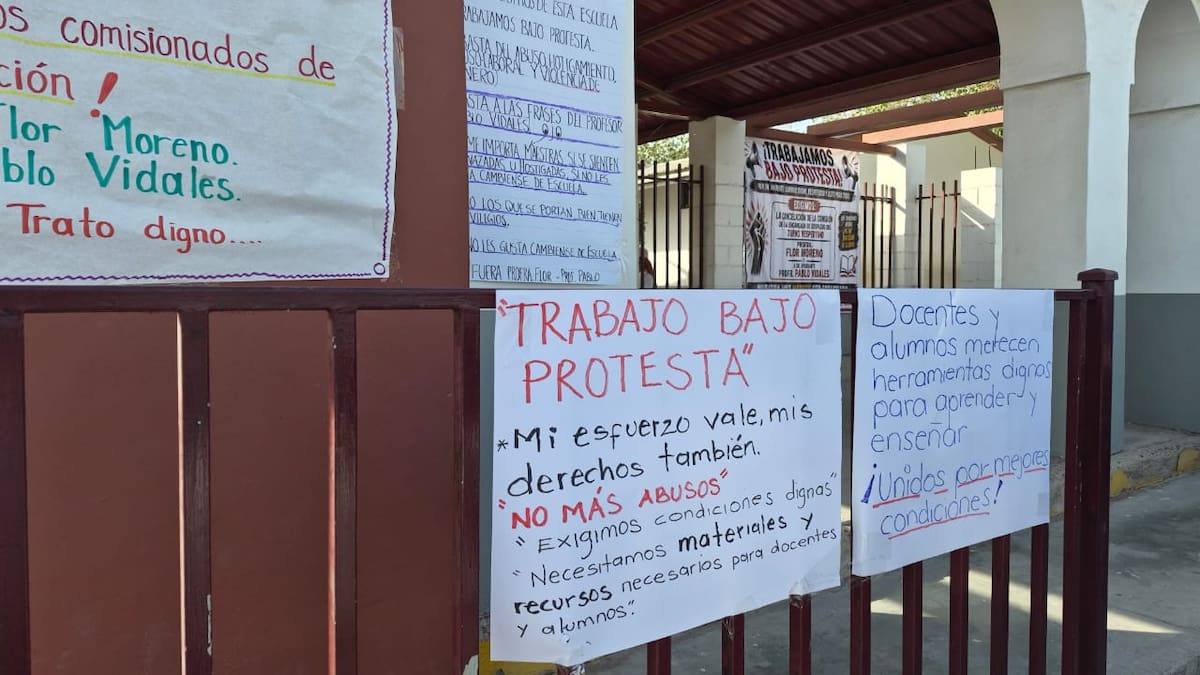 os comisionados de
ción!
Flor Moreno.
blo Vidales.
Trato digno....
DE ESTA ESCUELA
RABAJAMOS BAJO PROTESTA.
ASTA DEL ABUSO, HOSTIGAMIENTO,
SO LABORAL Y VIOLENCIA DE
NERO)
STA A LAS FRASES DEL PROFESOR
BLO VIDALES.
ME IMPORTA MAESTRAS, SI SE SIENTEN
NAZADAS U HOSTIGADAS, SI NO LES
A CAMBIENSE DE ESCUELA.
O LOS QUE SE PORTAN BIEN TIENEN
VILEGIOS.
NO LES GUSTA CAMBIENSE DE ESCUELA
FUERA PROFRA FLOR - PROF. PABLO
¡TRABAJAMOS
BAJO PROTESTA!
LA CANCELACIÓN DE LA COMISIÓN
DE LA ENCARGADA DE DESPACHO DEL
TURNO VESPERTINO
FLOR MORENO
PROFR. PABLO VIDALES
"TRABAJO BAJO
PROTESTA"
*Mi esfuerzo vale, mis
derechos también.
"NO MÁS ABUSOS"
"Exigimos condiciones dignas"
"Necesitamos materiales y
recursos necesarios para docentes
y alumnos".
Docentes y
alumnos merecen
herramientas dignas
para aprender y
enseñar
¡Unidos por mejores
condiciones!